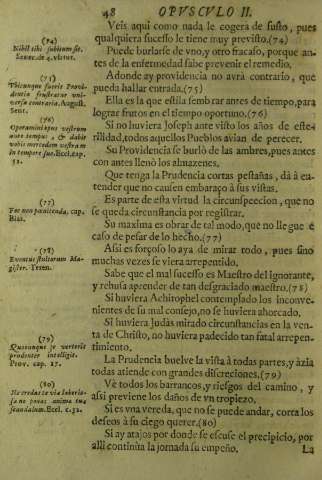 48 OPVSCVLO II.
Veis aqui como nada le cogera de susto, pues
qualquiera sucesso le tiene muy previsto.(74)
Puede burlarse de vno,y otro fracaso, porque an-
tes de la enfermedad sabe prevenir el remedio.
Adonde ay providencia no avrà contrario, que
pueda hallar entrada.(75)
Ella es la que estila sembrar antes de tiempo,para
lograr frutos en el tiempo oportuno.(76)
Si no huviera Joseph ante visto los años de este-
rilidad,todos aquellos Pueblos avian de perecer.
Su Providencia se burlò de las ambres,pues antes
con antes llenò los almazenes.
Que tenga la Prudencia cortas pestañas, dà à en-
tender que no causen embaraço à sus vistas.
Es parte de esta virtud la circunspeccion, que no
se queda circunstancia por registrar.
Su maxima es obrar de tal modo,que no llegue el
caso de pesar de lo hecho.(77)
Assi es forçoso lo aya de mirar todo, pues sino
muchas vezes se viera arrepentido.
Sabe que el mal sucesso es Maestro del ignorante,
y rehusa aprender de tan desgraciado maestro.(78)
Si huviera Achirophel contemplado los inconve-
nientes de su mal consejo,no se huviera ahorcado.
Si huviera Judas mirado circunstancias en la ven-
ta de Christo, no huviera padecido tan fatal arrepen-
timiento.
La Prudencia buelve la vista à todas partes,y àzia
todas atiende con grandes discreciones.(79)
Vè todos los barrancos,y riesgos del camino, y
assi previene los daños de vn tropiezo.
Si es vna vereda, que no se puede andar, corta los
deseos à su ciego querer.(80)
Si ay atajos por donde se escuse el precipicio, por
alli continùa la jornada su empeño.
La
(74)
Nihil sibi subitum
Senec.de 4.virtut.
(75)
Vbicunque fuerit Provi-
dentia frustratur vni-
versa contraria, August.
Sent.
(76)
Operamini opus vestrum
ante tempus, & dabit
vobis mercedem vestram
in tempore suo.Eccl.cap.
51.
(77)
Fac non pœnitenda, cap.
Bias.
(78)
Eventus stultorum Ma-
gister.
(79)
Quocunque se verterit
prudenter intelligit.
Prov. cap. 17.
(80)
Ne credas te viæ laborio-
sæ ne ponas animæ tuæ
scandalum.Eccl. c.32.